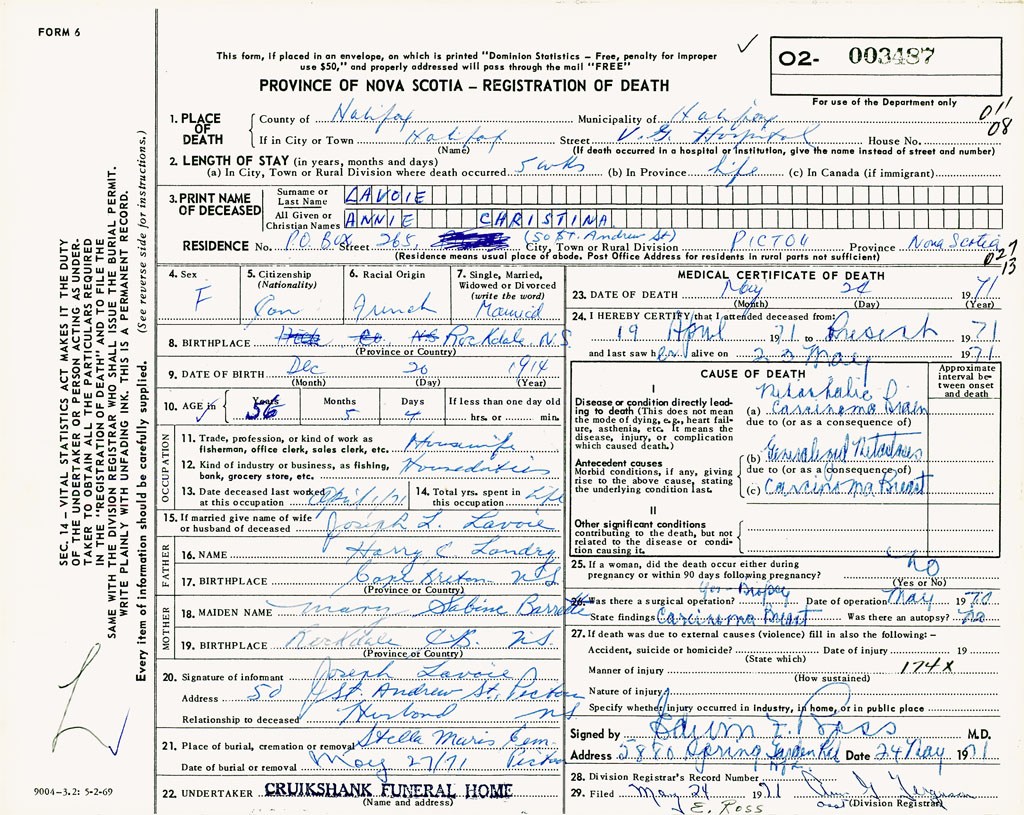 FORM 6
This form, if placed in an envelope, on which is printed "Dominion Statistics - Free, penalty for improper
use $50," and properly addressed will pass through the mail "FREE"
O2- 003487
PROVINCE OF NOVA SCOTIA - REGISTRATION OF DEATH
For use of the Department only
011
08
1. PLACE OF DEATH
County of Halifax Municipality of Halifax
If in City or Town Halifax Street V.G. Hospital House No.
(Name) (If death occurred in a hospital or institution, give the name instead of street and number)
2. LENGTH OF STAY (in years, months and days)
(a) In City, Town or Rural Division where death occurred 5 wks (b) In Province Life (c) In Canada (if immigrant)
3. PRINT NAME OF DECEASED
Surname or Last Name LAVOIE
All Given or Christian Names ANNIE CHRISTINA
RESIDENCE No. P.O. Box Street 265, (50 St. Andrew St) City, Town or Rural Division PICTOU Province Nova Scotia
(Residence means usual place of abode. Post Office Address for residents in rural parts not sufficient)
027
13
4. Sex F
5. Citizenship (Nationality) Can
6. Racial Origin French
7. Single, Married, Widowed or Divorced (write the word) Married
8. BIRTHPLACE Rockdale N.S.
(Province or Country)
9. DATE OF BIRTH Dec 20 1914
(Month) (Day) (Year)
10. AGE in Years 56 Months 5 Days 4 If less than one day old hrs. or min.
OCCUPATION
11. Trade, profession, or kind of work as fisherman, office clerk, sales clerk, etc. Housewife
12. Kind of industry or business, as fishing, bank, grocery store, etc. Houseduties
13. Date deceased last worked at this occupation April/71
14. Total yrs. spent in this occupation Life
15. If married give name of wife or husband of deceased Joseph L. Lavoie
FATHER
16. NAME Harry C Landry
17. BIRTHPLACE Cape Breton NS
(Province or Country)
MOTHER
18. MAIDEN NAME Mary Sabine
19. BIRTHPLACE Rockdale C.B. N.S.
(Province or Country)
20. Signature of informant Joseph Lavoie
Address 50 St. Andrew St., Pictou
Relationship to deceased Husband NS
21. Place of burial, cremation or removal Stella Maris Cem.
Date of burial or removal May 27/71 Pictou
22. UNDERTAKER CRUIKSHANK FUNERAL HOME
(Name and address)
MEDICAL CERTIFICATE OF DEATH
23. DATE OF DEATH May 24 1971
(Month) (Day) (Year)
24. I HEREBY CERTIFY that I attended deceased from:
19 April 1971 to Present 1971
and last saw her alive on 23 May 1971
CAUSE OF DEATH
Approximate interval between onset and death
I
Disease or condition directly leading to death (This does not mean the mode of dying, e.g., heart failure, asthenia, etc. It means the disease, injury, or complication which caused death.)
(a) Carcinoma Brain
due to (or as a consequence of)
Antecedent causes
Morbid conditions, if any, giving rise to the above cause, stating the underlying condition last.
(b) Generalized Metastases
due to (or as a consequence of)
(c) Carcinoma Breast
II
Other significant conditions contributing to the death, but not related to the disease or condition causing it.
25. If a woman, did the death occur either during pregnancy or within 90 days following pregnancy? No
(Yes or No)
26. Was there a surgical operation? Yes - Biopsy Date of operation May 1970
State findings Carcinoma Breast Was there an autopsy? no
27. If death was due to external causes (violence) fill in also the following: -
Accident, suicide or homicide? Date of injury 19
(State which)
Manner of injury 174X
(How sustained)
Nature of injury
Specify whether injury occurred in industry, in home, or in public place
Signed by Edwin F. Ross M.D.
Address 5880 Spring Garden Rd Date 24 May 1971
Hfx
28. Division Registrar's Record Number
29. Filed May 24 1971 Ferguson
(Division Registrar)
E. ROSS
SEC. 14 - VITAL STATISTICS ACT MAKES IT THE DUTY
OF THE UNDERTAKER OR PERSON ACTING AS UNDER-
TAKER TO OBTAIN ALL THE PARTICULARS REQUIRED
IN THIS "REGISTRATION OF DEATH" AND TO FILE THE
SAME WITH THE DIVISION REGISTRAR WHO SHALL ISSUE THE BURIAL PERMIT.
WRITE PLAINLY WITH UNFADING INK. THIS IS A PERMANENT RECORD.
Every item of information should be carefully supplied. (See reverse side for instructions.)
9004-3.2: 5-2-69